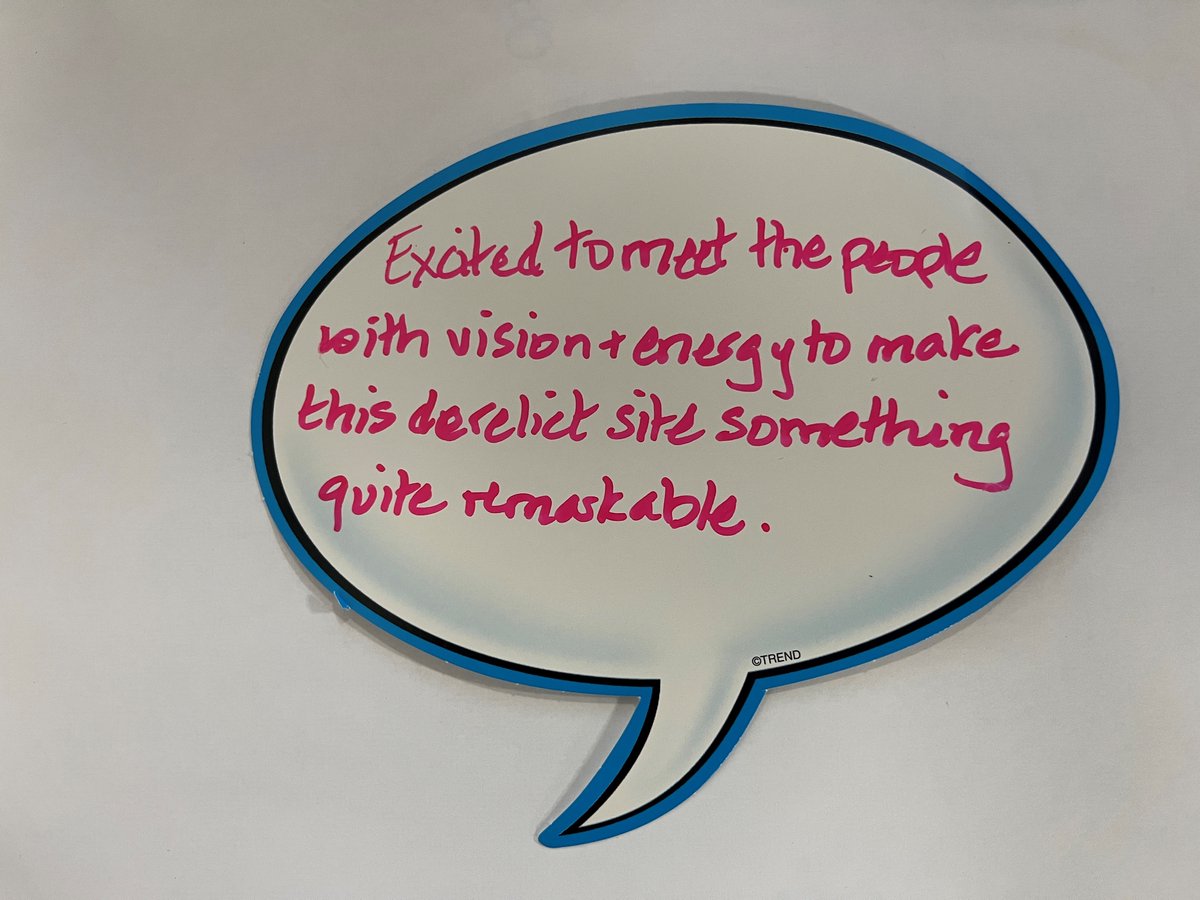 Excited to meet the people
with vision + energy to make
this derelict site something
quite remarkable.
©TREND